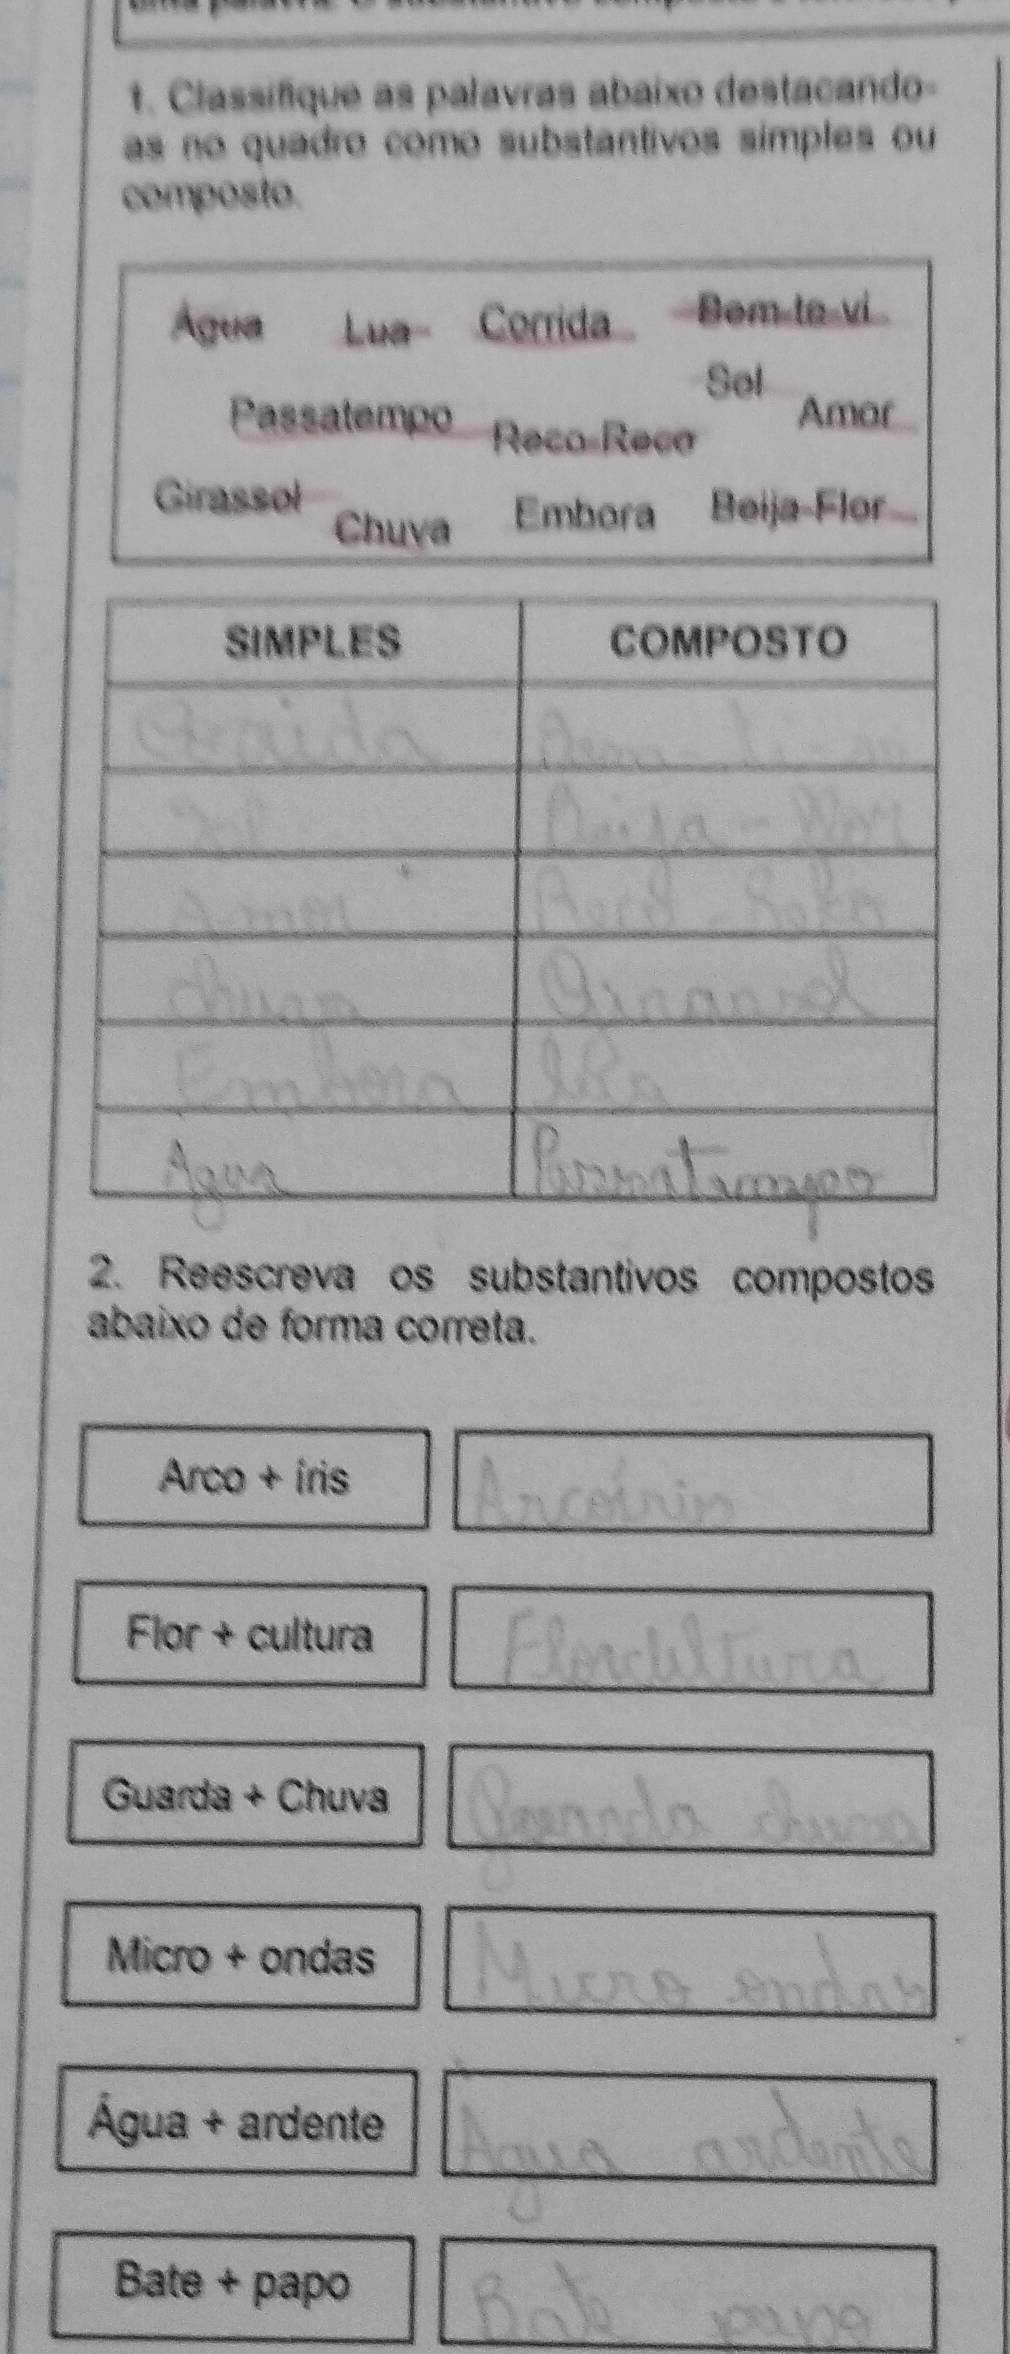 1. Classifique as palavras abaixo destacando-
as no quadro como substantivos simples ou
composto.
Água Lua Corrida Bem-te-vi
Sol
Passatempo Reco-Reco Amor
Girassol Chuva Embora Beija-Flor
SIMPLES COMPOSTO
Corrida Bem-ti-vi
Sol Beija-Flor
Amor Reco-Reko
chuva Girassol
Embora Lua
Agua Passatempo
2. Reescreva os substantivos compostos
abaixo de forma correta.
Arco + íris Arcoíris
Flor + cultura Florcultura
Guarda + Chuva Guarda chuva
Micro + ondas Micro ondas
Água + ardente Agua ardente
Bate + papo Bate papo